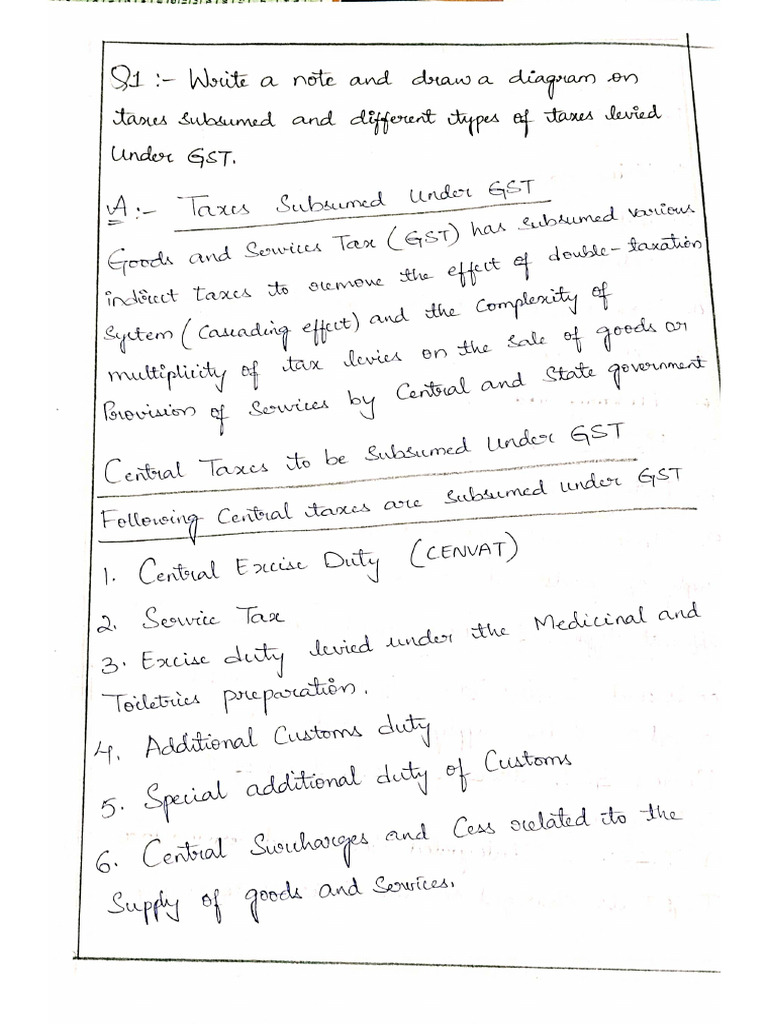 Q1 :- Write a note and draw a diagram on
taxes subsumed and different types of taxes levied
Under GST.
A :- Taxes Subsumed Under GST
Goods and Services Tax (GST) has subsumed various
indirect taxes to remove the effect of double-taxation
System (Cascading effect) and the Complexity of
multiplicity of tax levies on the sale of goods or
Provision of Services by Central and State government
Central Taxes to be Subsumed Under GST
Following Central taxes are subsumed under GST
1. Central Excise Duty (CENVAT)
2. Service Tax
3. Excise duty levied under the Medicinal and
Toiletries preparation.
4. Additional Customs duty
5. Special additional duty of Customs
6. Central Surcharges and Cess related to the
Supply of goods and Services.